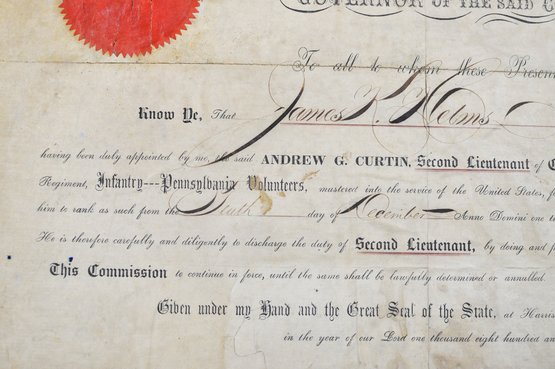 GOVERNOR OF THE SAID
To all to whom these
Know Ye, That James Helms
having been duly appointed by me, the said ANDREW G. CURTIN, Second Lieutenant of
Regiment, Infantry---Pennsylvania Volunteers, mustered into the service of the United States,
him to rank as such from the day of December Anno Domini one
He is therefore carefully and diligently to discharge the duty of Second Lieutenant, by doing and
This Commission to continue in force, until the same shall be lawfully determined or annulled.
Given under my Hand and the Great Seal of the State, at
in the year of our Lord one thousand eight hundred